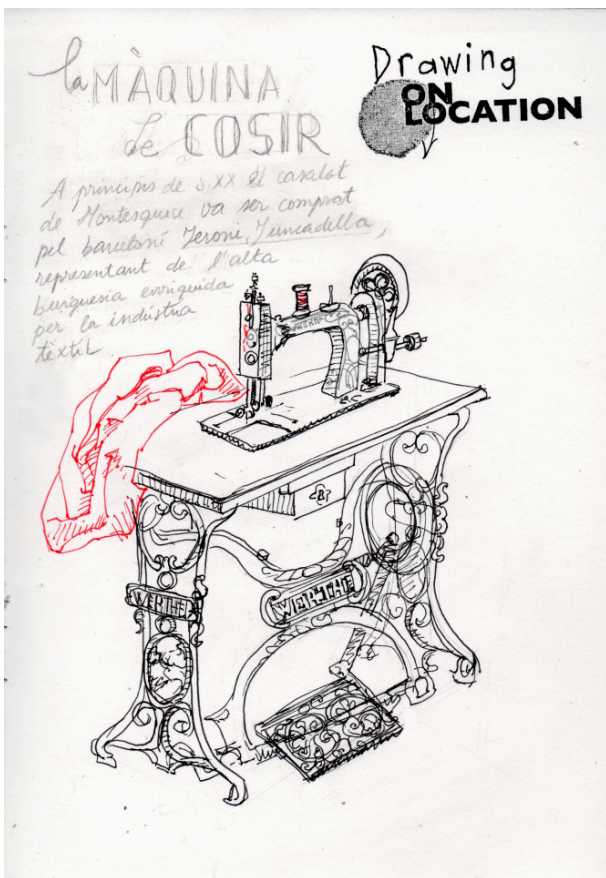 la MÀQUINA
de COSIR
A principis de S.XX el casalot
de Montesquiu va ser comprat
pel barceloní Jeroni Juncadella,
representant de l'alta
burguesia enriquida
per la indústria
tèxtil.
Drawing
ON
LOCATION
WERTHE
WERTHE